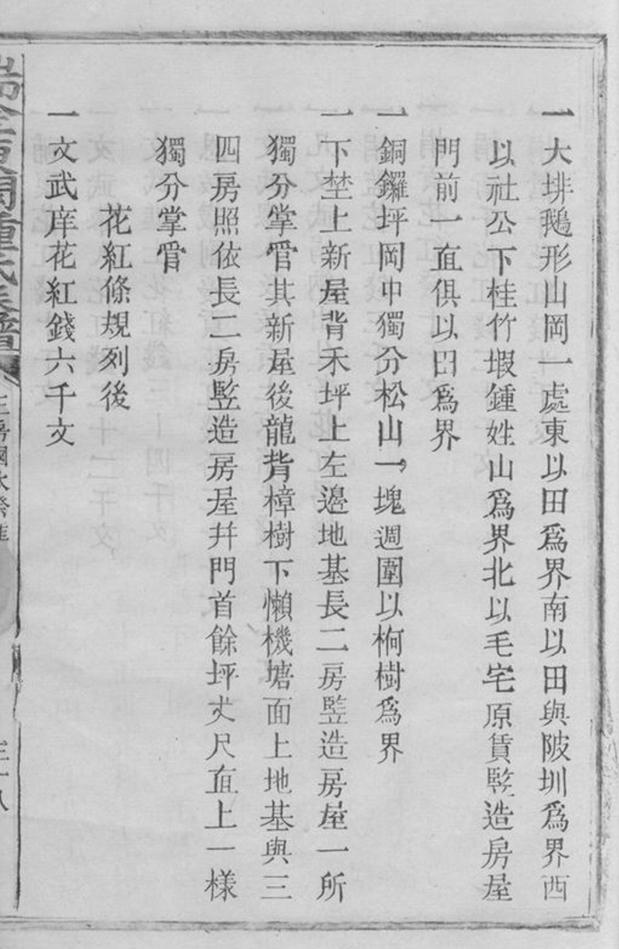 一大坢鵝形山岡一處東以田爲界南以田與陂圳爲界西
以社公下桂竹塅鍾姓山爲界北以毛宅原賃竪造房屋
門前一直俱以田爲界
一銅鑼坪岡中獨分松山一塊週圍以枸樹爲界
一下埜上新屋背禾坪上左邊地基長二房竪造房屋一所
獨分掌管其新屋後龍背樟樹下懶機塘面上地基與三
四房照依長二房竪造房屋幷門首餘坪丈尺直上一樣
獨分掌管
花紅條規列後
一文武庠花紅錢六千文